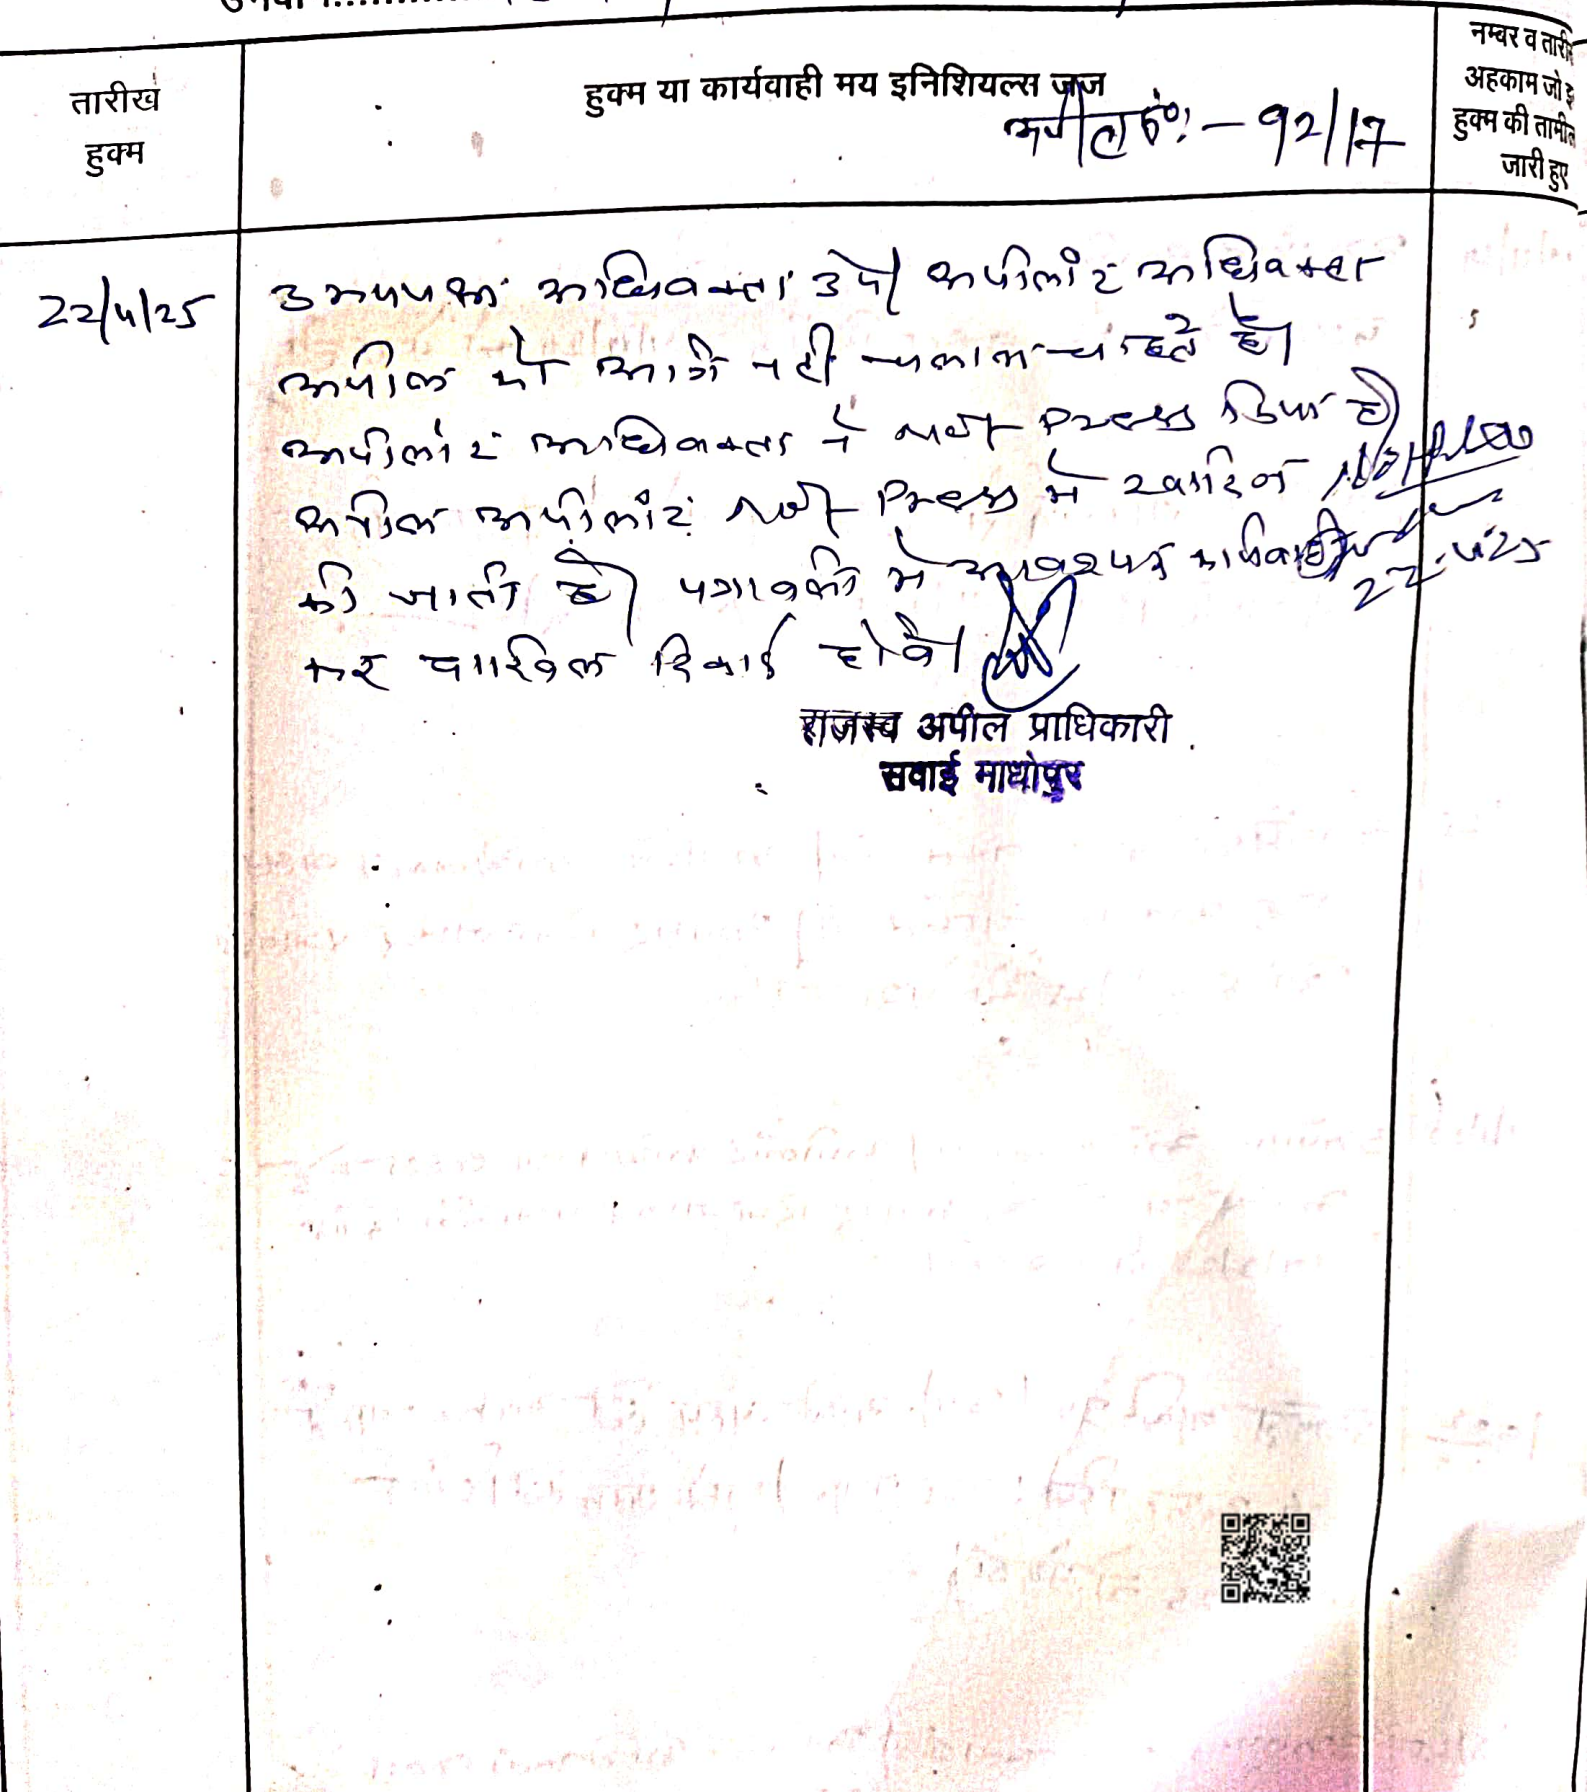 तारीख
हुक्म
हुक्म या कार्यवाही मय इनिशियल्स जज
नम्बर व तारीख
अहकाम जो इ
हुक्म की तामील
जारी हुए
अपील सं०:- 92/17
22/4/25
उभयपक्ष अधिवक्ता उप। अपीलांट अधिवक्ता
अपील को आगे नही चलाना चाहते है।
अपीलांट अधिवक्ता ने Not Press किया है।
अपील अपीलांट Not Press मे खारिज
की जाती है। पत्रावली मे आवश्यक कार्यवाही
कर दाखिल रिकार्ड होवे।
22.4.25
राजस्व अपील प्राधिकारी
सवाई माधोपुर